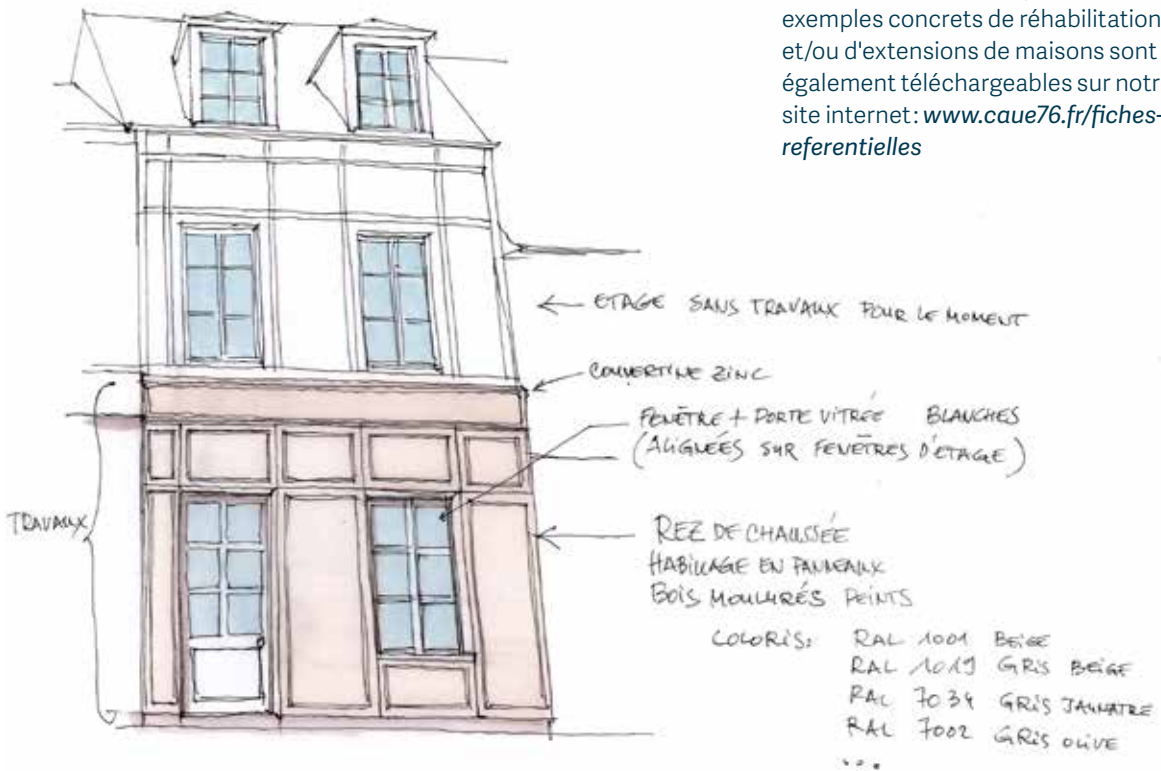 exemples concrets de réhabilitation
et/ou d'extensions de maisons sont
également téléchargeables sur notr
site internet : www.caue76.fr/fiches-
referentielles
ETAGE SANS TRAVAUX POUR LE MOMENT
COUVERTINE ZINC
FENÊTRE + PORTE VITRÉE BLANCHES
(ALIGNÉES SUR FENÊTRES D'ÉTAGE)
TRAVAUX
REZ DE CHAUSSÉE
HABILLAGE EN PANNEAUX
BOIS MOULURÉS PEINTS
COLORIS: RAL 1001 BEIGE
RAL 1019 GRIS BEIGE
RAL 7034 GRIS JAUNATRE
RAL 7002 GRIS OLIVE
...